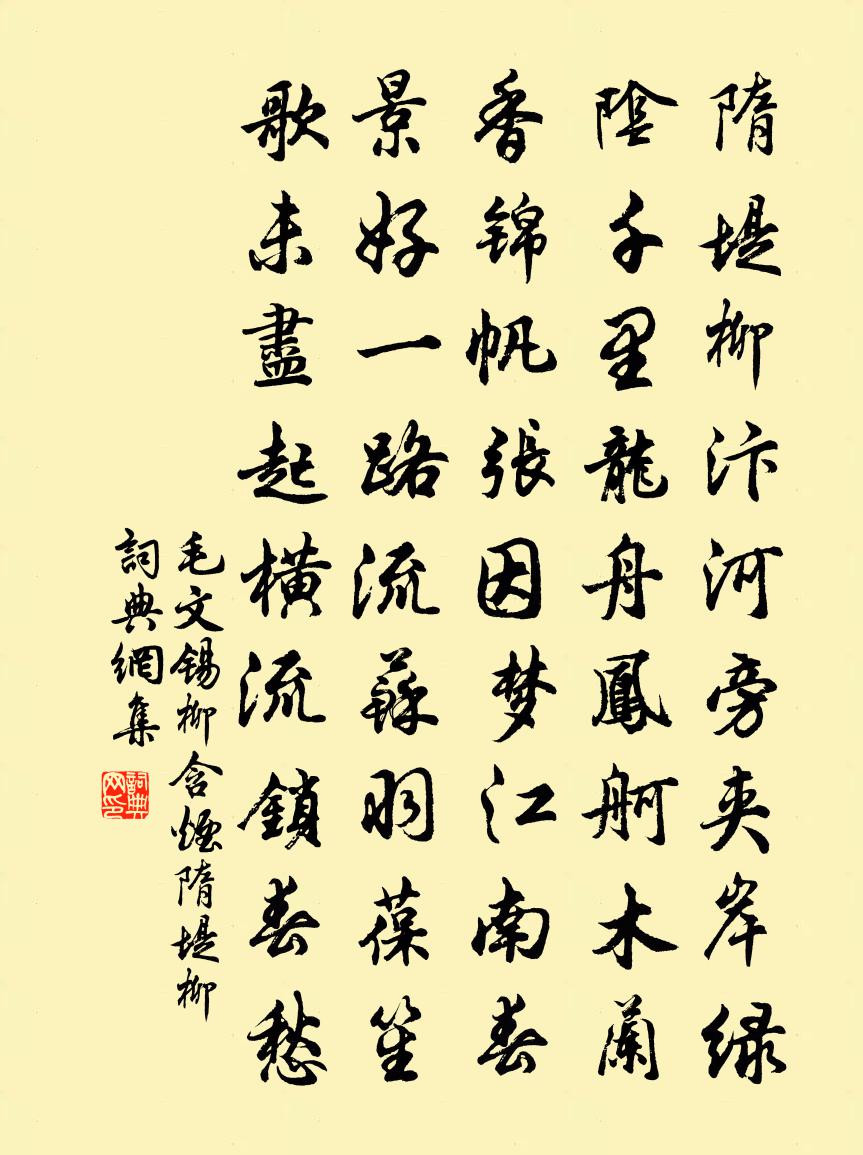 隋堤柳汴河旁夹岸绿
陰千里龍舟鳳舸木蘭
香锦帆張因梦江南春
景好一路流蘇羽葆笙
歌未盡起横流鎖春愁
毛文锡柳含煙隋堤柳
詞典網集
詞典网印